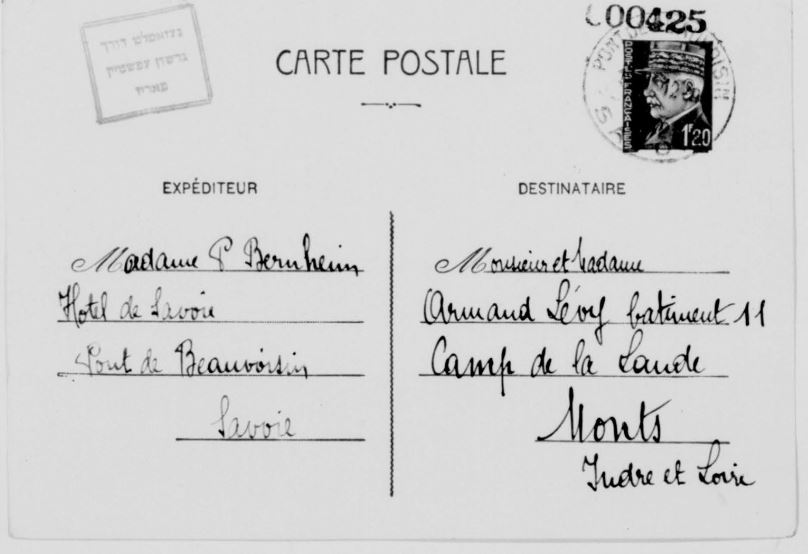 00425
געזאמלט דורך
גרשון עפשטיין
פאריז
CARTE POSTALE
PONT DE BEAUVOISIN
POSTES FRANÇAISES
1F20
EXPÉDITEUR
Madame P Bernheim
Hotel de Savoie
Pont de Beauvoisin
Savoie
DESTINATAIRE
Monsieur et Madame
Armand Lévy batiment 11
Camp de la Lande
Monts
Indre et Loire